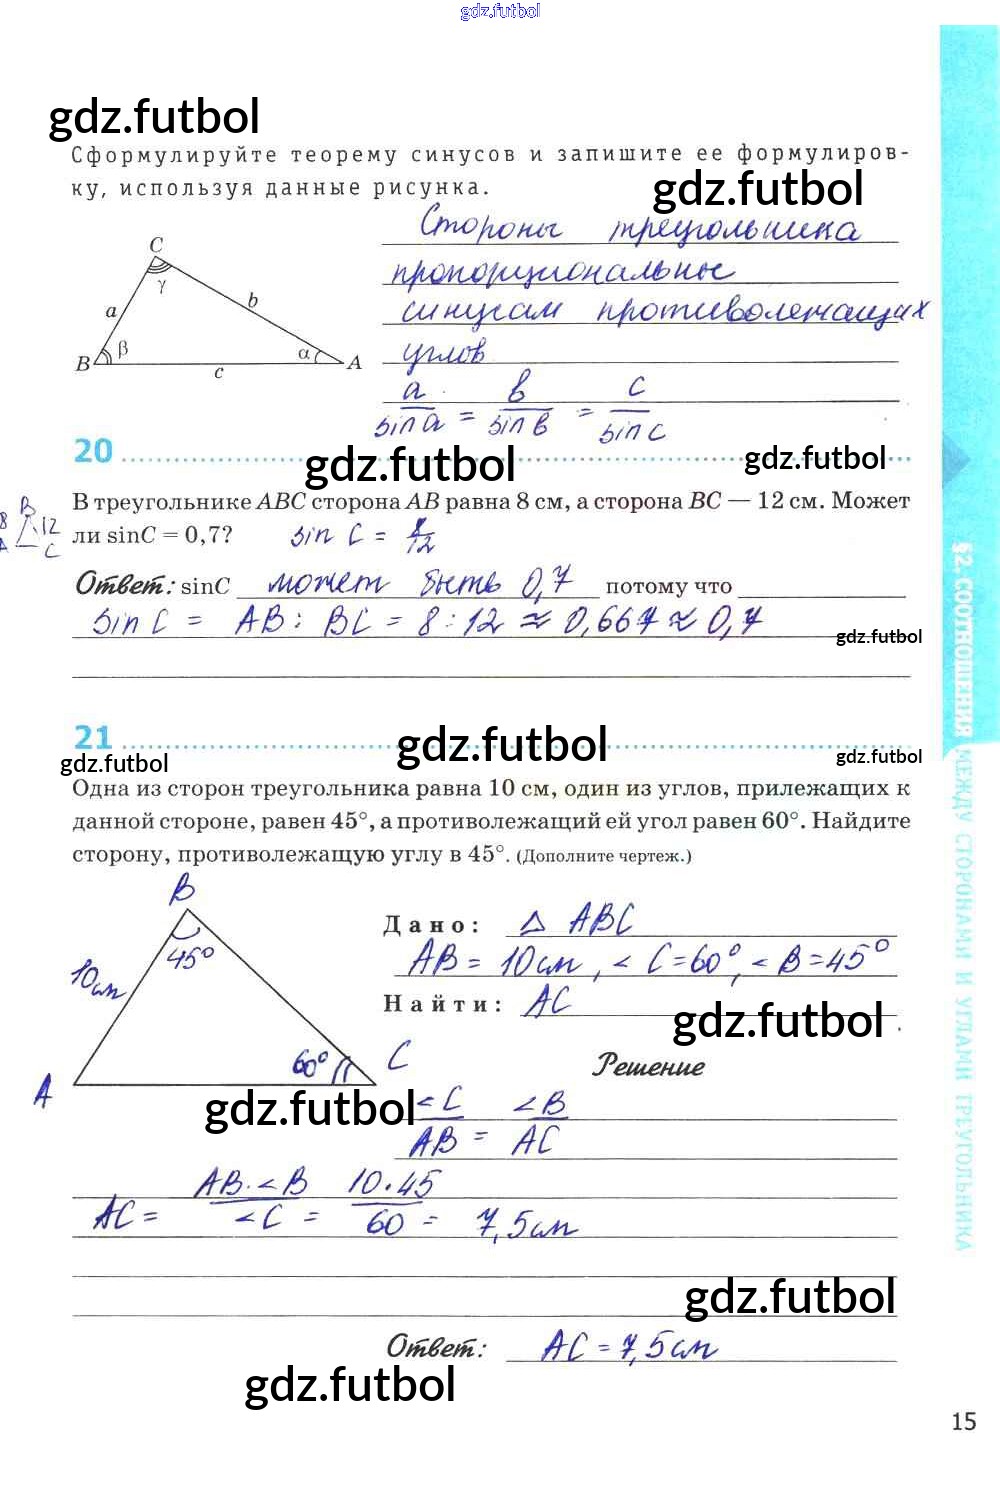 gdz.futbol
gdz.futbol
Сформулируйте теорему синусов и запишите ее формулиров-
ку, используя данные рисунка.
gdz.futbol
Стороны треугольника
пропорциональны
синусам противолежащих
углов
a/sin a = b/sin b = c/sin c
C
γ
a
b
B
β
α
A
c
20
gdz.futbol
gdz.futbol
В треугольнике ABC сторона AB равна 8 см, а сторона BC — 12 см. Может
ли sinC = 0,7? sin C = 8/12
B
8
12
A
C
Ответ: sinC может быть 0,7 потому что
sin C = AB : BC = 8 : 12 ≈ 0,667 ≈ 0,7
gdz.futbol
21
gdz.futbol
gdz.futbol
gdz.futbol
Одна из сторон треугольника равна 10 см, один из углов, прилежащих к
данной стороне, равен 45°, а противолежащий ей угол равен 60°. Найдите
сторону, противолежащую углу в 45°. (Дополните чертеж.)
B
45°
10см
60°
C
A
Дано: Δ ABC
AB = 10см, < C=60°, < B=45°
Найти: AC
gdz.futbol
Решение
gdz.futbol
<C/AB = <B/AC
AC = AB·<B/<C = 10·45/60 = 7,5см
gdz.futbol
Ответ: AC = 7,5см
gdz.futbol
15
§2. СООТНОШЕНИЯ МЕЖДУ СТОРОНАМИ И УГЛАМИ ТРЕУГОЛЬНИКА